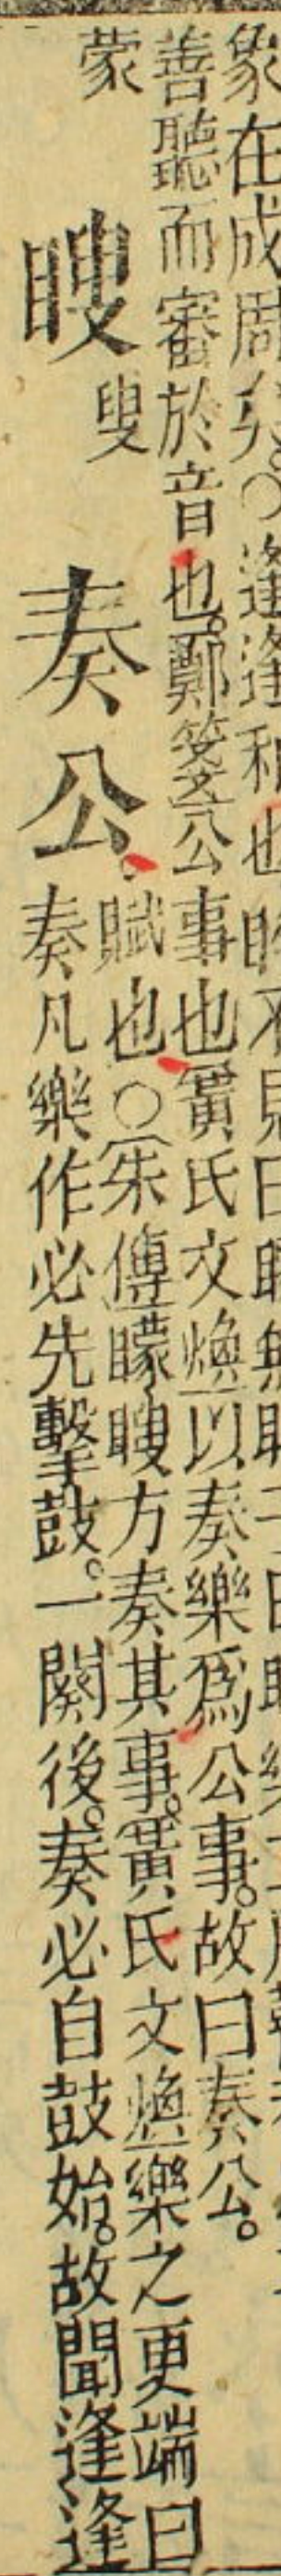 象在成周矣○逢逢和也
善聽而審於音也。鄭箋公事也黃氏文煥以奏樂爲公事。故曰奏公。
蒙
瞍叟奏公。
賦也○朱傳矇瞍方奏其事。黃氏文煥樂之更端曰
奏凡樂作必先擊鼓。一闋後。奏必自鼓始。故聞逢逢